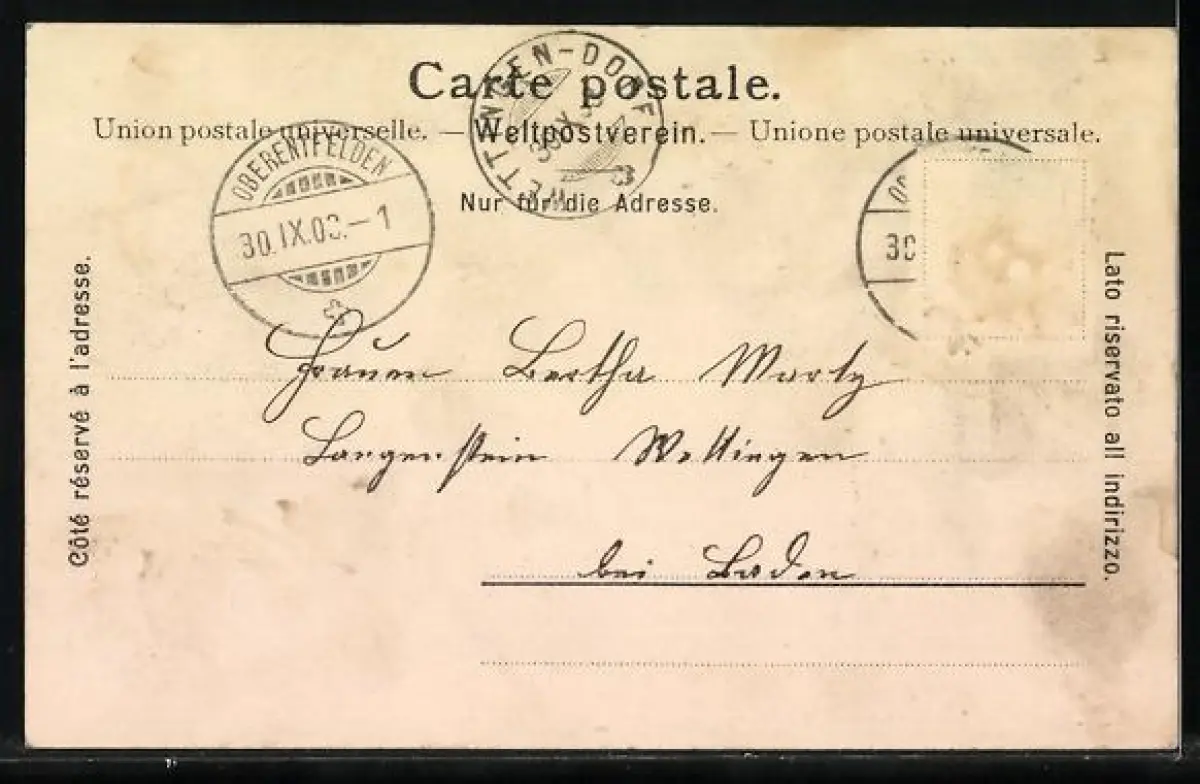 Carte postale.
Union postale universelle. — Weltpostverein. — Unione postale universale.
Nur für die Adresse.
WETTINGEN-DORF
OBERENTFELDEN
30.IX.03.–1
30
Côté réservé à l'adresse.
Lato riservato all indirizzo.
Bertha
Langenstein Wettingen
bei Baden